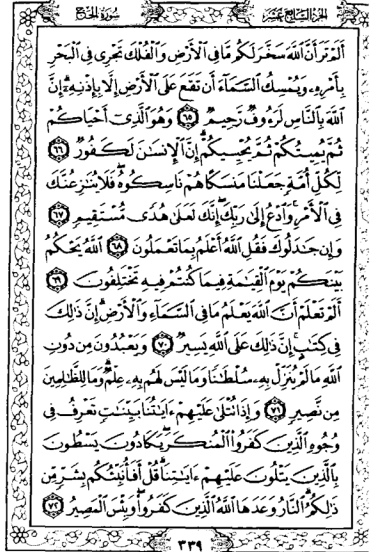 الجزء السابع عشر
سورة الحج
أَلَمْ تَرَ أَنَّ ٱللَّهَ سَخَّرَ لَكُم مَّا فِى ٱلْأَرْضِ وَٱلْفُلْكَ تَجْرِى فِى ٱلْبَحْرِ
بِأَمْرِهِۦ وَيُمْسِكُ ٱلسَّمَآءَ أَن تَقَعَ عَلَى ٱلْأَرْضِ إِلَّا بِإِذْنِهِۦٓ إِنَّ
ٱللَّهَ بِٱلنَّاسِ لَرَءُوفٌ رَّحِيمٌ ٦٥ وَهُوَ ٱلَّذِىٓ أَحْيَاكُمْ
ثُمَّ يُمِيتُكُمْ ثُمَّ يُحْيِيكُمْ إِنَّ ٱلْإِنسَٰنَ لَكَفُورٌ ٦٦
لِكُلِّ أُمَّةٍ جَعَلْنَا مَنسَكًا هُمْ نَاسِكُوهُ فَلَا يُنَٰزِعُنَّكَ
فِى ٱلْأَمْرِ وَٱدْعُ إِلَىٰ رَبِّكَ إِنَّكَ لَعَلَىٰ هُدًى مُّسْتَقِيمٍ ٦٧
وَإِن جَٰدَلُوكَ فَقُلِ ٱللَّهُ أَعْلَمُ بِمَا تَعْمَلُونَ ٦٨ ٱللَّهُ يَحْكُمُ
بَيْنَكُمْ يَوْمَ ٱلْقِيَٰمَةِ فِيمَا كُنتُمْ فِيهِ تَخْتَلِفُونَ ٦٩
أَلَمْ تَعْلَمْ أَنَّ ٱللَّهَ يَعْلَمُ مَا فِى ٱلسَّمَآءِ وَٱلْأَرْضِ إِنَّ ذَٰلِكَ
فِى كِتَٰبٍ إِنَّ ذَٰلِكَ عَلَى ٱللَّهِ يَسِيرٌ ٧٠ وَيَعْبُدُونَ مِن دُونِ
ٱللَّهِ مَا لَمْ يُنَزِّلْ بِهِۦ سُلْطَٰنًا وَمَا لَيْسَ لَهُم بِهِۦ عِلْمٌ وَمَا لِلظَّٰلِمِينَ
مِن نَّصِيرٍ ٧١ وَإِذَا تُتْلَىٰ عَلَيْهِمْ ءَايَٰتُنَا بَيِّنَٰتٍ تَعْرِفُ فِى
وُجُوهِ ٱلَّذِينَ كَفَرُوا۟ ٱلْمُنكَرَ يَكَادُونَ يَسْطُونَ
بِٱلَّذِينَ يَتْلُونَ عَلَيْهِمْ ءَايَٰتِنَا قُلْ أَفَأُنَبِّئُكُم بِشَرٍّ مِّن
ذَٰلِكُمُ ٱلنَّارُ وَعَدَهَا ٱللَّهُ ٱلَّذِينَ كَفَرُوا۟ وَبِئْسَ ٱلْمَصِيرُ ٧٢
٣٣٩